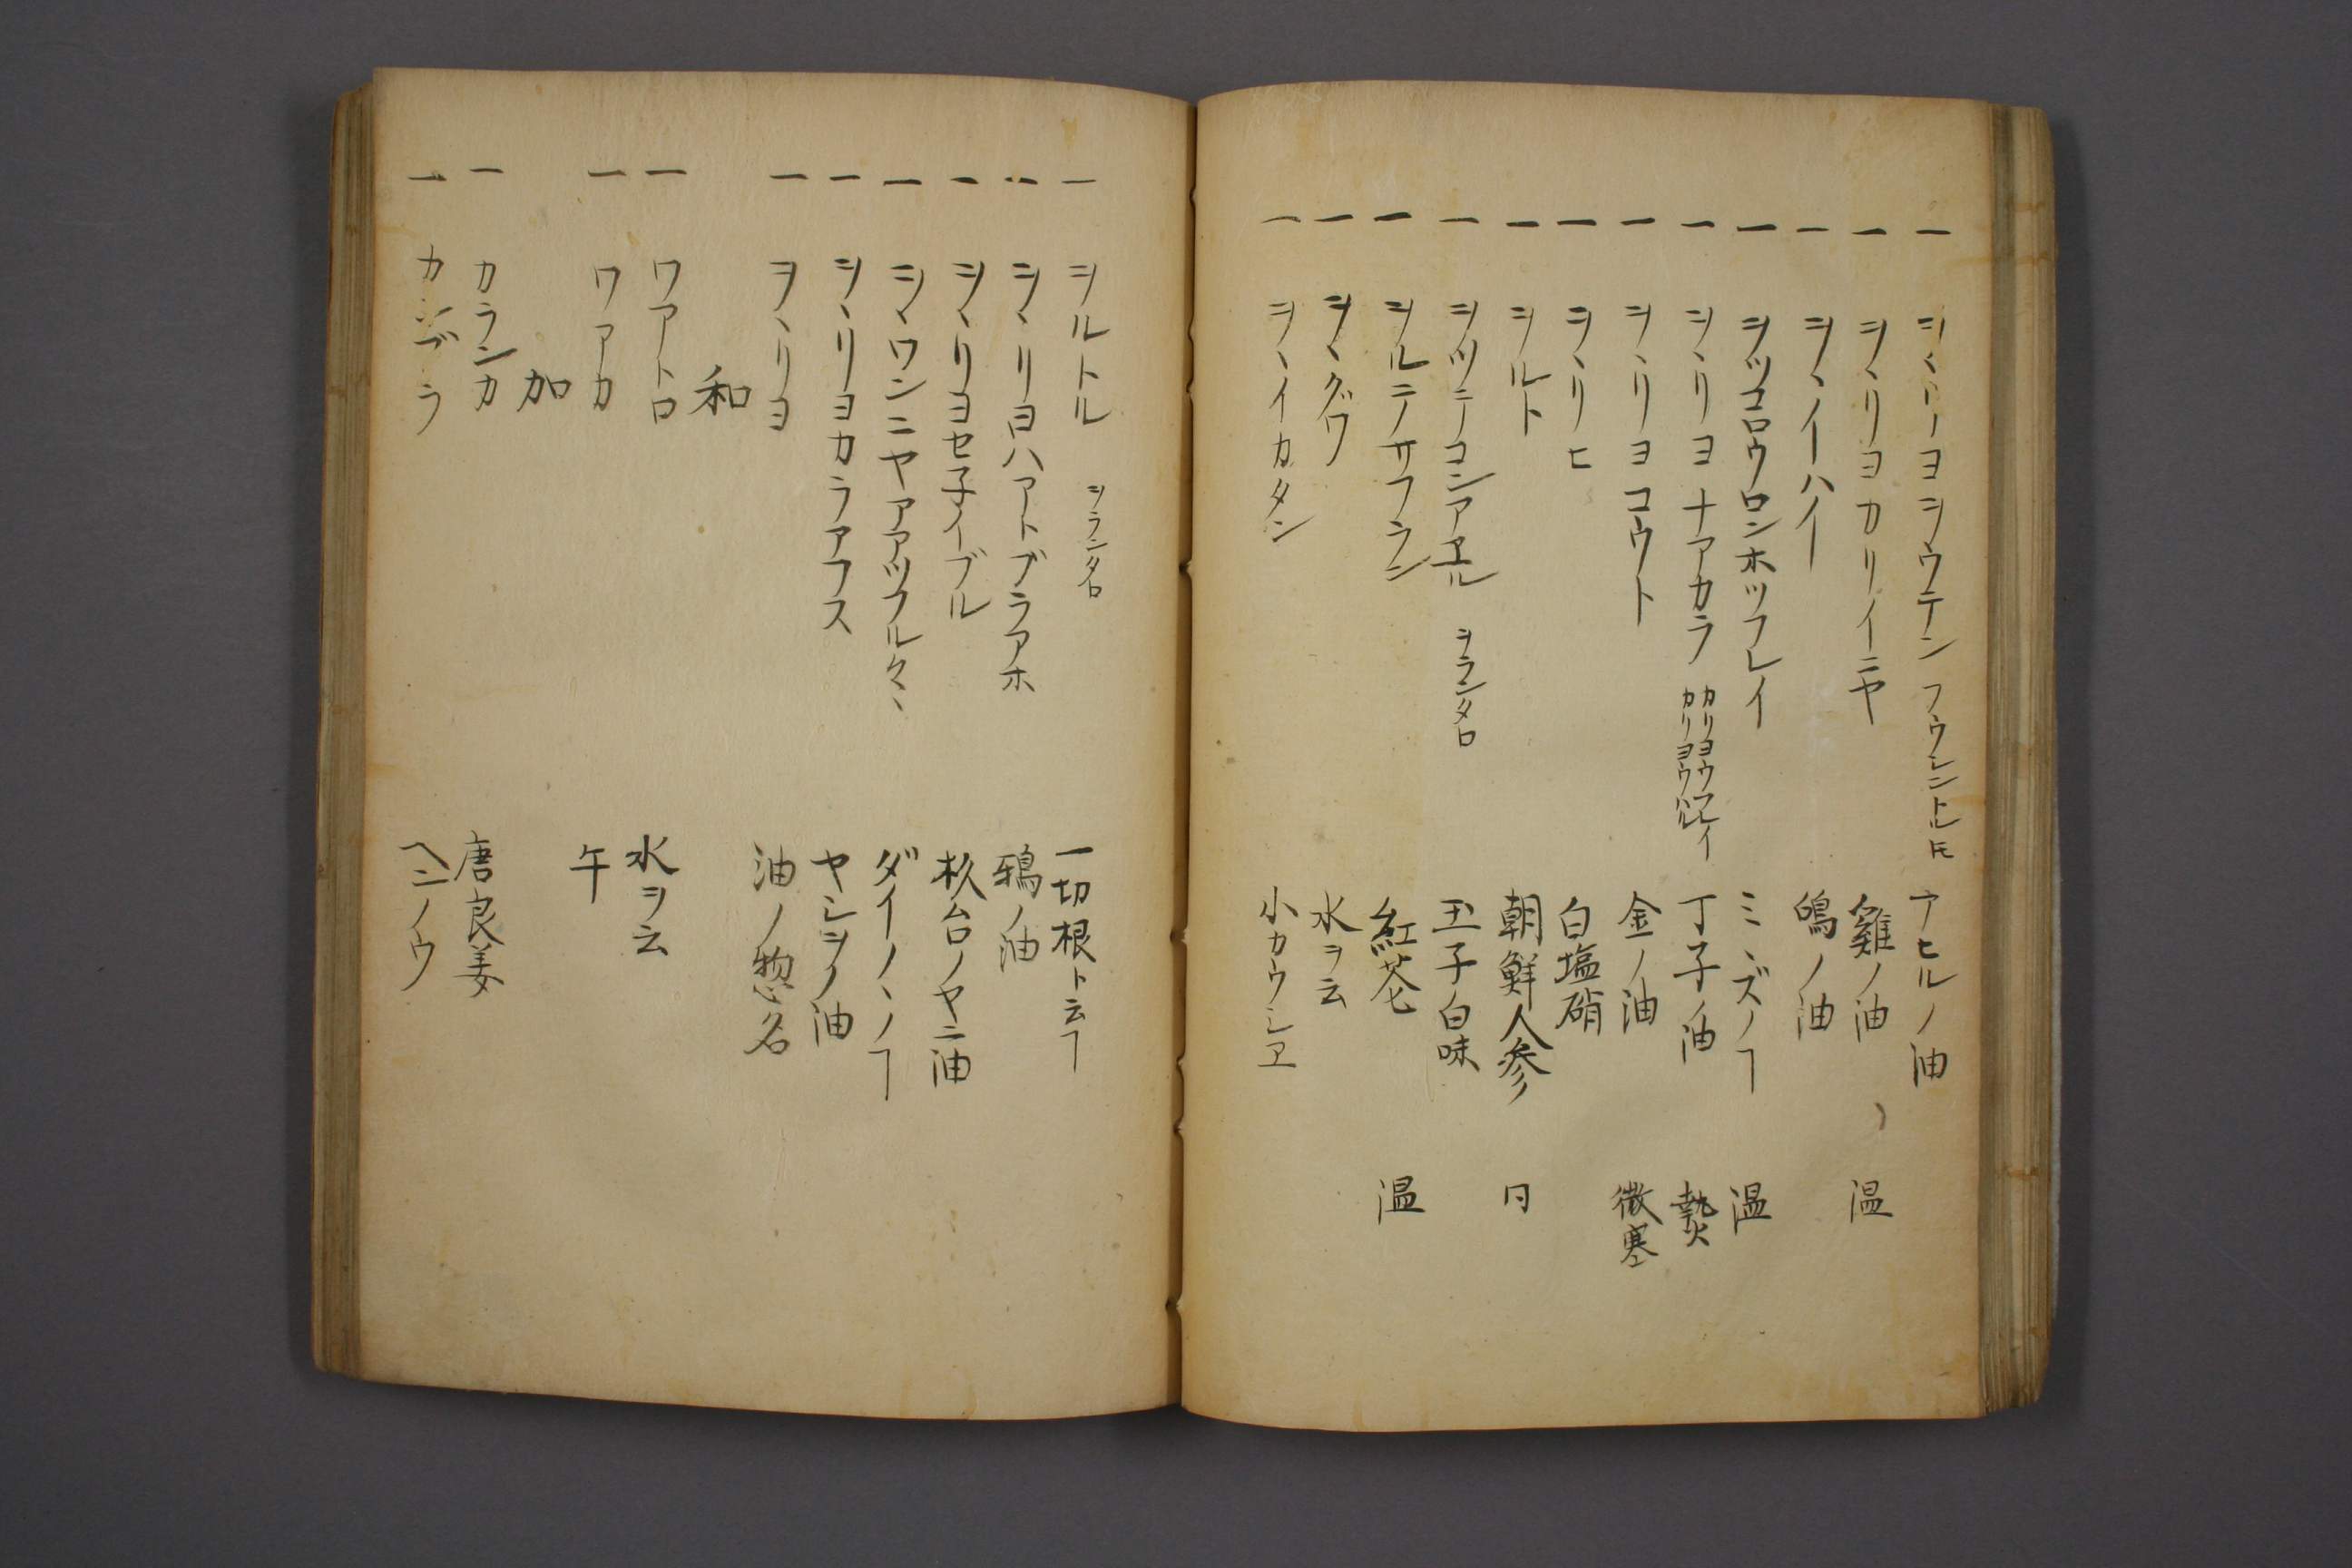 一 ヲヽリヨヲウテン フウシントル𪜈 アヒルノ油
一 ヲヽリヨカリイニヤ 雞ノ油 温
一 ヲヽイハイ 鴇ノ油
一 ヲツコロウロンホツフレイ ミヽズノヿ 温
一 ヲヽリヨナアカラ カリヨウフレイ カリヨウハル 丁子ノ油 熱
一 ヲヽリヨコウト 金ノ油 微寒
一 ヲヽリヒ 白塩硝
一 ヲルト 朝鮮人参 同
一 ヲツテコシアヱル ヲランタロ 玉子白味
一 ヲルテノサフラン 紅花 温
一 ヲヽグワ 水ヲ云
一 ヲヽイカタン 小カウシヱ
一 ヲルトル ヲランタロ 一切根ト云ヿ
一 ヲヽリヨハアトブラアホ 鴉ノ油
一 ヲヽリヨセ子イブル 杦台ノヤニ油
一 ヲヽワンニヤアアツフル々ヽ ダイノヽノヿ
一 ヲヽリヨカラアフス ヤシヲノ油
一 ヲヽリヨ 油ノ惣名
和
一 ワアトロ 水ヲ云
一 ワアカ 午
加
一 カランカ 唐良姜
一 カンブラ ヘンノウ